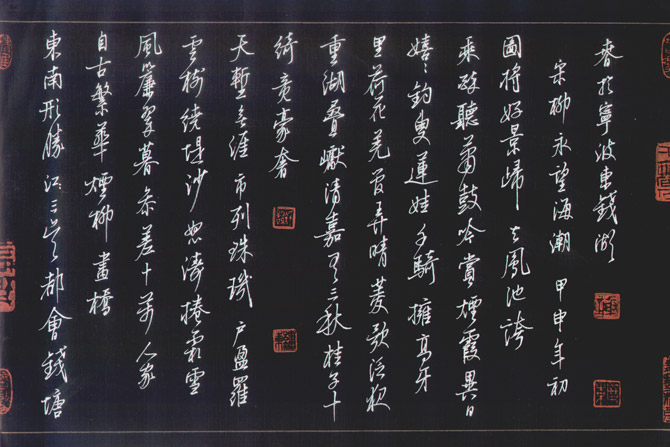 東南形勝江三吳都會錢塘
自古繁華煙柳畫橋
風簾翠暮參差十萬人家
雲樹繞堤沙怒濤捲霜雪
天塹無涯市列珠璣戶盈羅
綺競豪奢
重湖疊巘清嘉有三秋桂子十
里荷花羌管弄晴菱歌泛夜
嬉嬉釣叟蓮娃千騎擁高牙
乘醉聽簫鼓吟賞煙霞異日
圖將好景歸去鳳池誇
宋柳永望海潮 甲申年初
春於寧波東錢湖